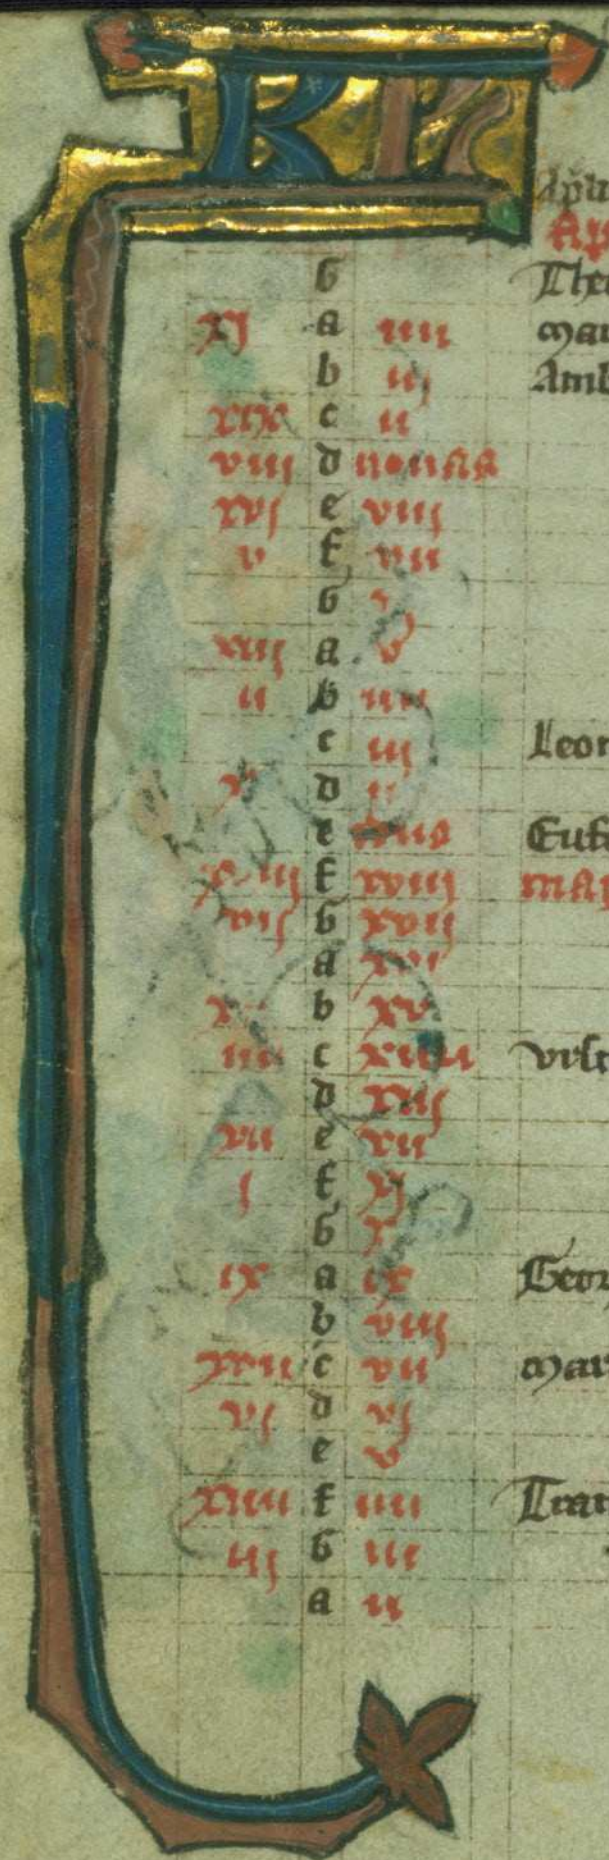 KL
Aplis
Ap
G The
xj a iiii mar
b iij Amb
xix c ii
viii d nonas
xvj e viij
v f vii
G vj
xiij a v
ii b iiii
c iij Leon
x d ii
e idus Eufe
xviij f xviij mar
vij G xvij
a xvi
xv b xv
iiii c xiiii vrsi
d xiij
xii e xii
j f xj
G x
ix a ix Geor
b viij
xvii c vii mar
vj d vj
e v
xiiii f iiii Tran
iij G iii
a ii